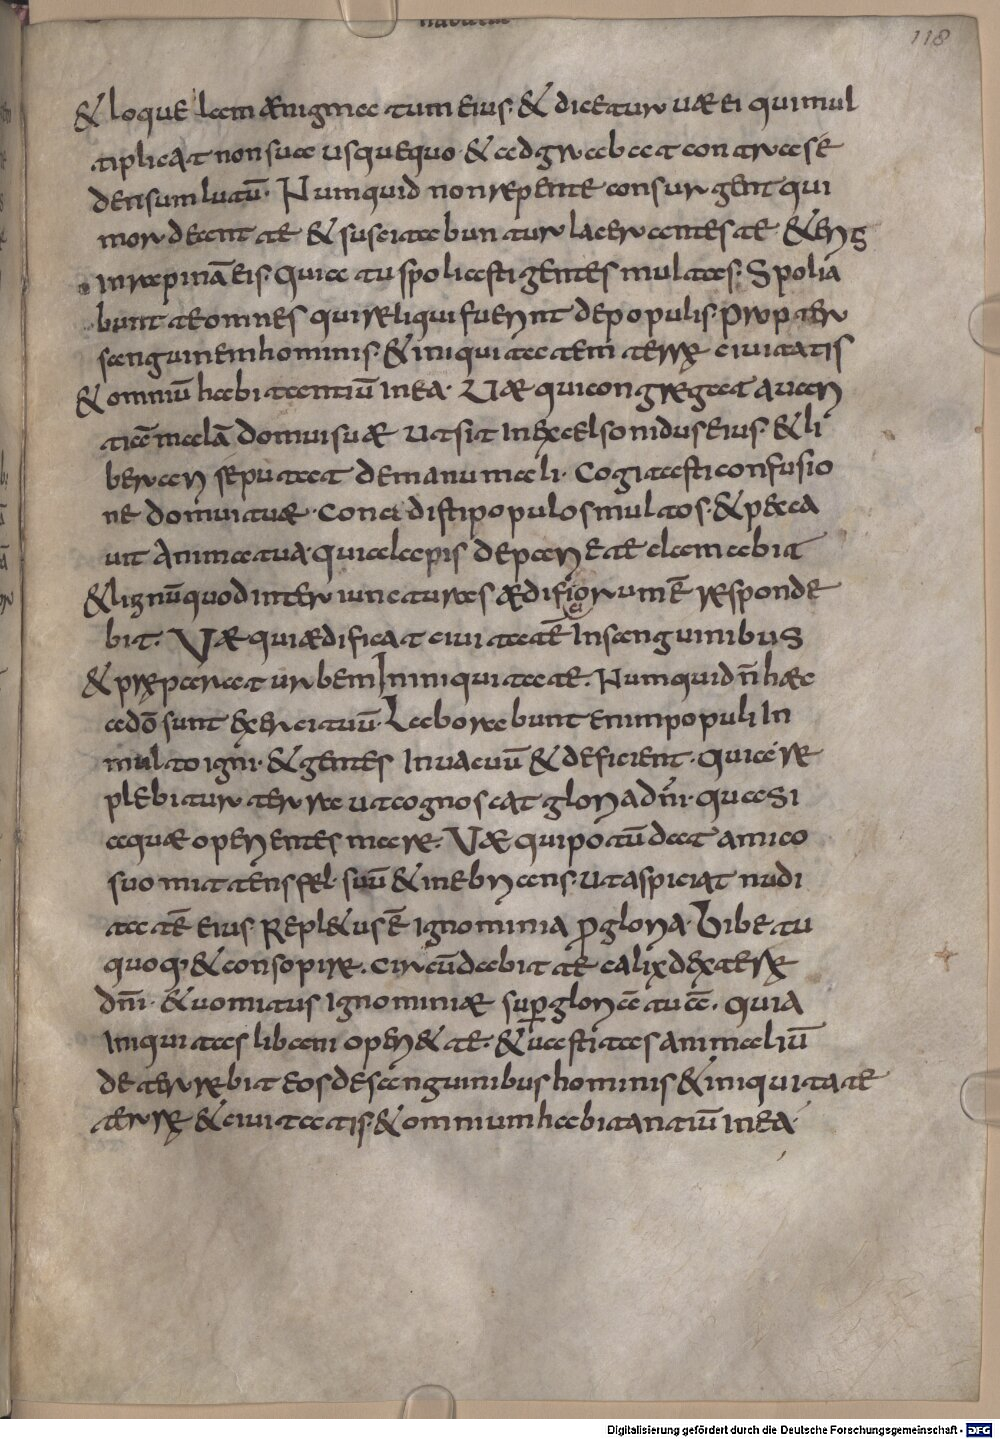 118
& loquela aenigmatum eius. & dicetur uae ei qui mul
tiplicat non sua usquequo. & adgrabat contra se
densum lutū. Numquid non repente consurgent qui
mordeant te & suscitabuntur lacerantes te & eris
in rapinā eis. Quia tu spoliasti gentes multas. Spolia
bunt te omnes qui reliqui fuerint de populis. Propter
sanguinem hominis. & iniquitatem terrę ciuitatis
& omniū habitantiū in ea. Uae qui congregat auari
tiā malā domui suae ut sit in excelso nidus eius. & li
berari se putat de manu mali. Cogitasti confusio
nē domui tuae. Concidisti populos multos. & pecca
uit anima tua. quia lapis de pariete clamabit
& lignū quod inter iuncturas aedificiorum ē responde
bit. Vae qui aedificat ciuitatē In sanguinibus
& pręparat urbem In iniquitate. Numquid ñ haec
a dō sunt exercituū. Laborabunt enim populi In
multo igni. & gentes In uacuū & deficient. Quia re
plebitur terra ut cognoscat gloria dñi. quasi
aquae operientes mare. Vae qui potū dat amico
suo mittens fel suū & inebrians. ut aspiciat nudi
tatē eius Repl&us ē ignominia p gloria. Bibe tu
quoq. & consopire. Circūdabit te calix dexterę
dñi. & uomitus ignominiae sup gloriā tuā. Quia
iniquitas libani operi& te. & uastitas animaliū
deterrebit eos de sanguinibus hominis & iniquitate
terrę & ciuitatis. & omnium habitantiū in ea.
Digitalisierung gefördert durch die Deutsche Forschungsgemeinschaft - DFG